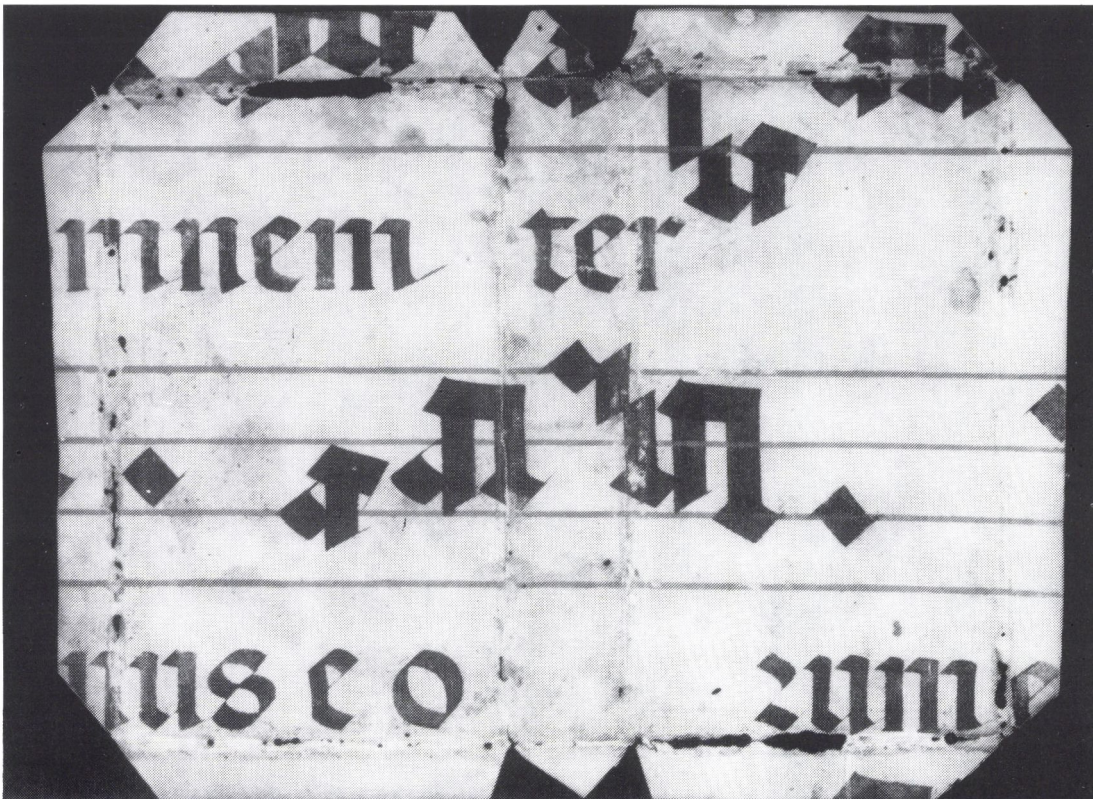 mnem ter
nus eo rum